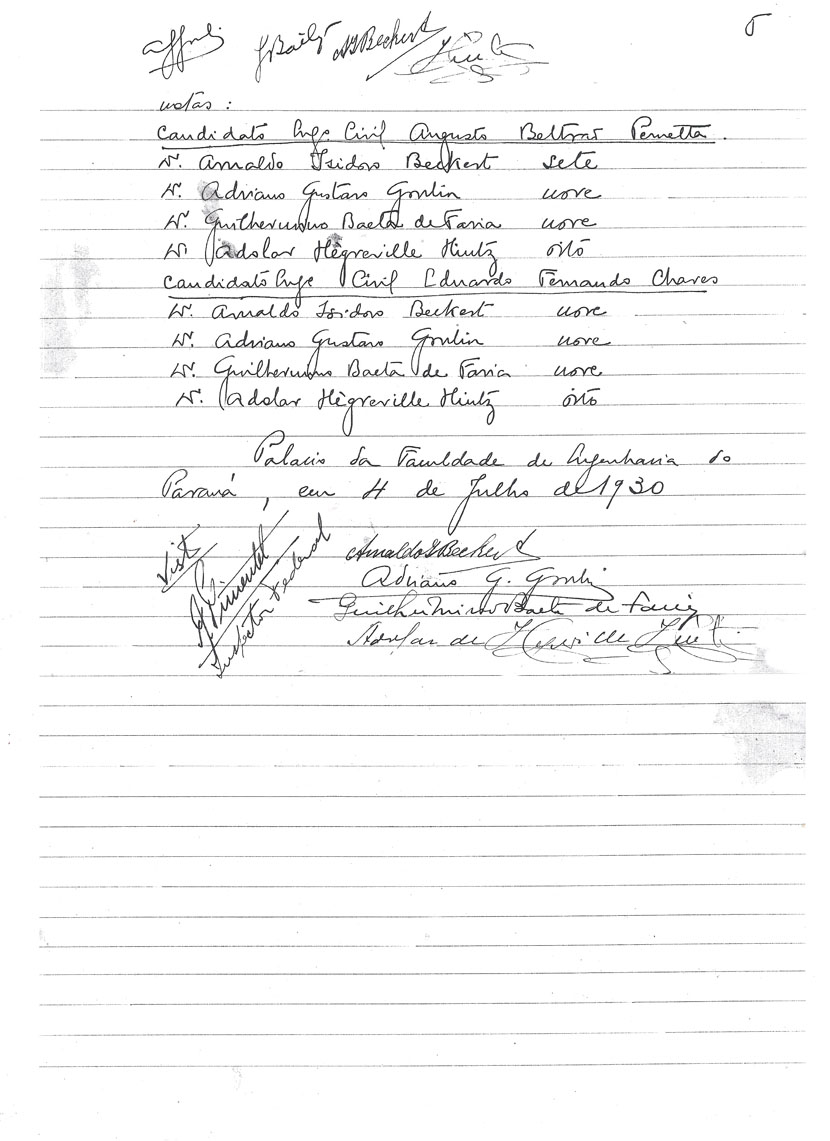 5
GBaêta AIBeckert
notas :
Candidato Engo Civil Augusto Beltrão Pernetta .
Dr. Arnaldo Isidoro Beckert sete
Dr. Adriano Gustavo Goulin nove
Dr. Guilhermino Baeta de Faria nove
Dr. Adolar Hègreville Hintz oito
Candidato Engo Civil Eduardo Fernando Chaves
Dr. Arnaldo Isidoro Beckert nove
Dr. Adriano Gustavo Goulin nove
Dr. Guilhermino Baeta de Faria nove
Dr. Adolar Hègreville Hintz oito
Palacio da Faculdade de Engenharia do
Paraná , em 4 de Julho de 1930
Visto
Pimentel
Inspector Federal
ArnaldoIBeckert
Adriano G. Goulin
Guilhermino Baeta de Faria
Adolar de Hegreville Hintz